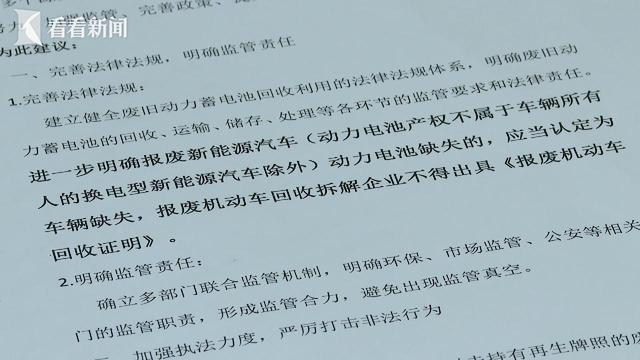 看看新闻
完善政策、
为此建议：
一、完善法律法规，明确监管责任
1.完善法律法规：
建立健全废旧动力蓄电池回收利用的法律法规体系，明确废旧动
力蓄电池的回收、运输、储存、处理等各环节的监管要求和法律责任。
进一步明确报废新能源汽车（动力电池产权不属于车辆所有
人的换电型新能源汽车除外）动力电池缺失的，应当认定为
车辆缺失，报废机动车回收拆解企业不得出具《报废机动车
回收证明》。
2.明确监管责任：
确立多部门联合监管机制，明确环保、市场监管、公安等相关
门的监管职责，形成监管合力，避免出现监管真空。
加强执法力度，严厉打击非法行为
持有再生牌照的废